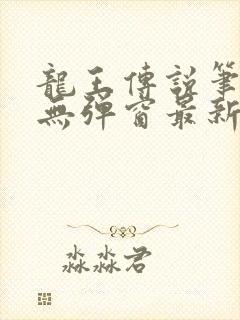 龍王傳說筆
無彈窗最新
淼淼君